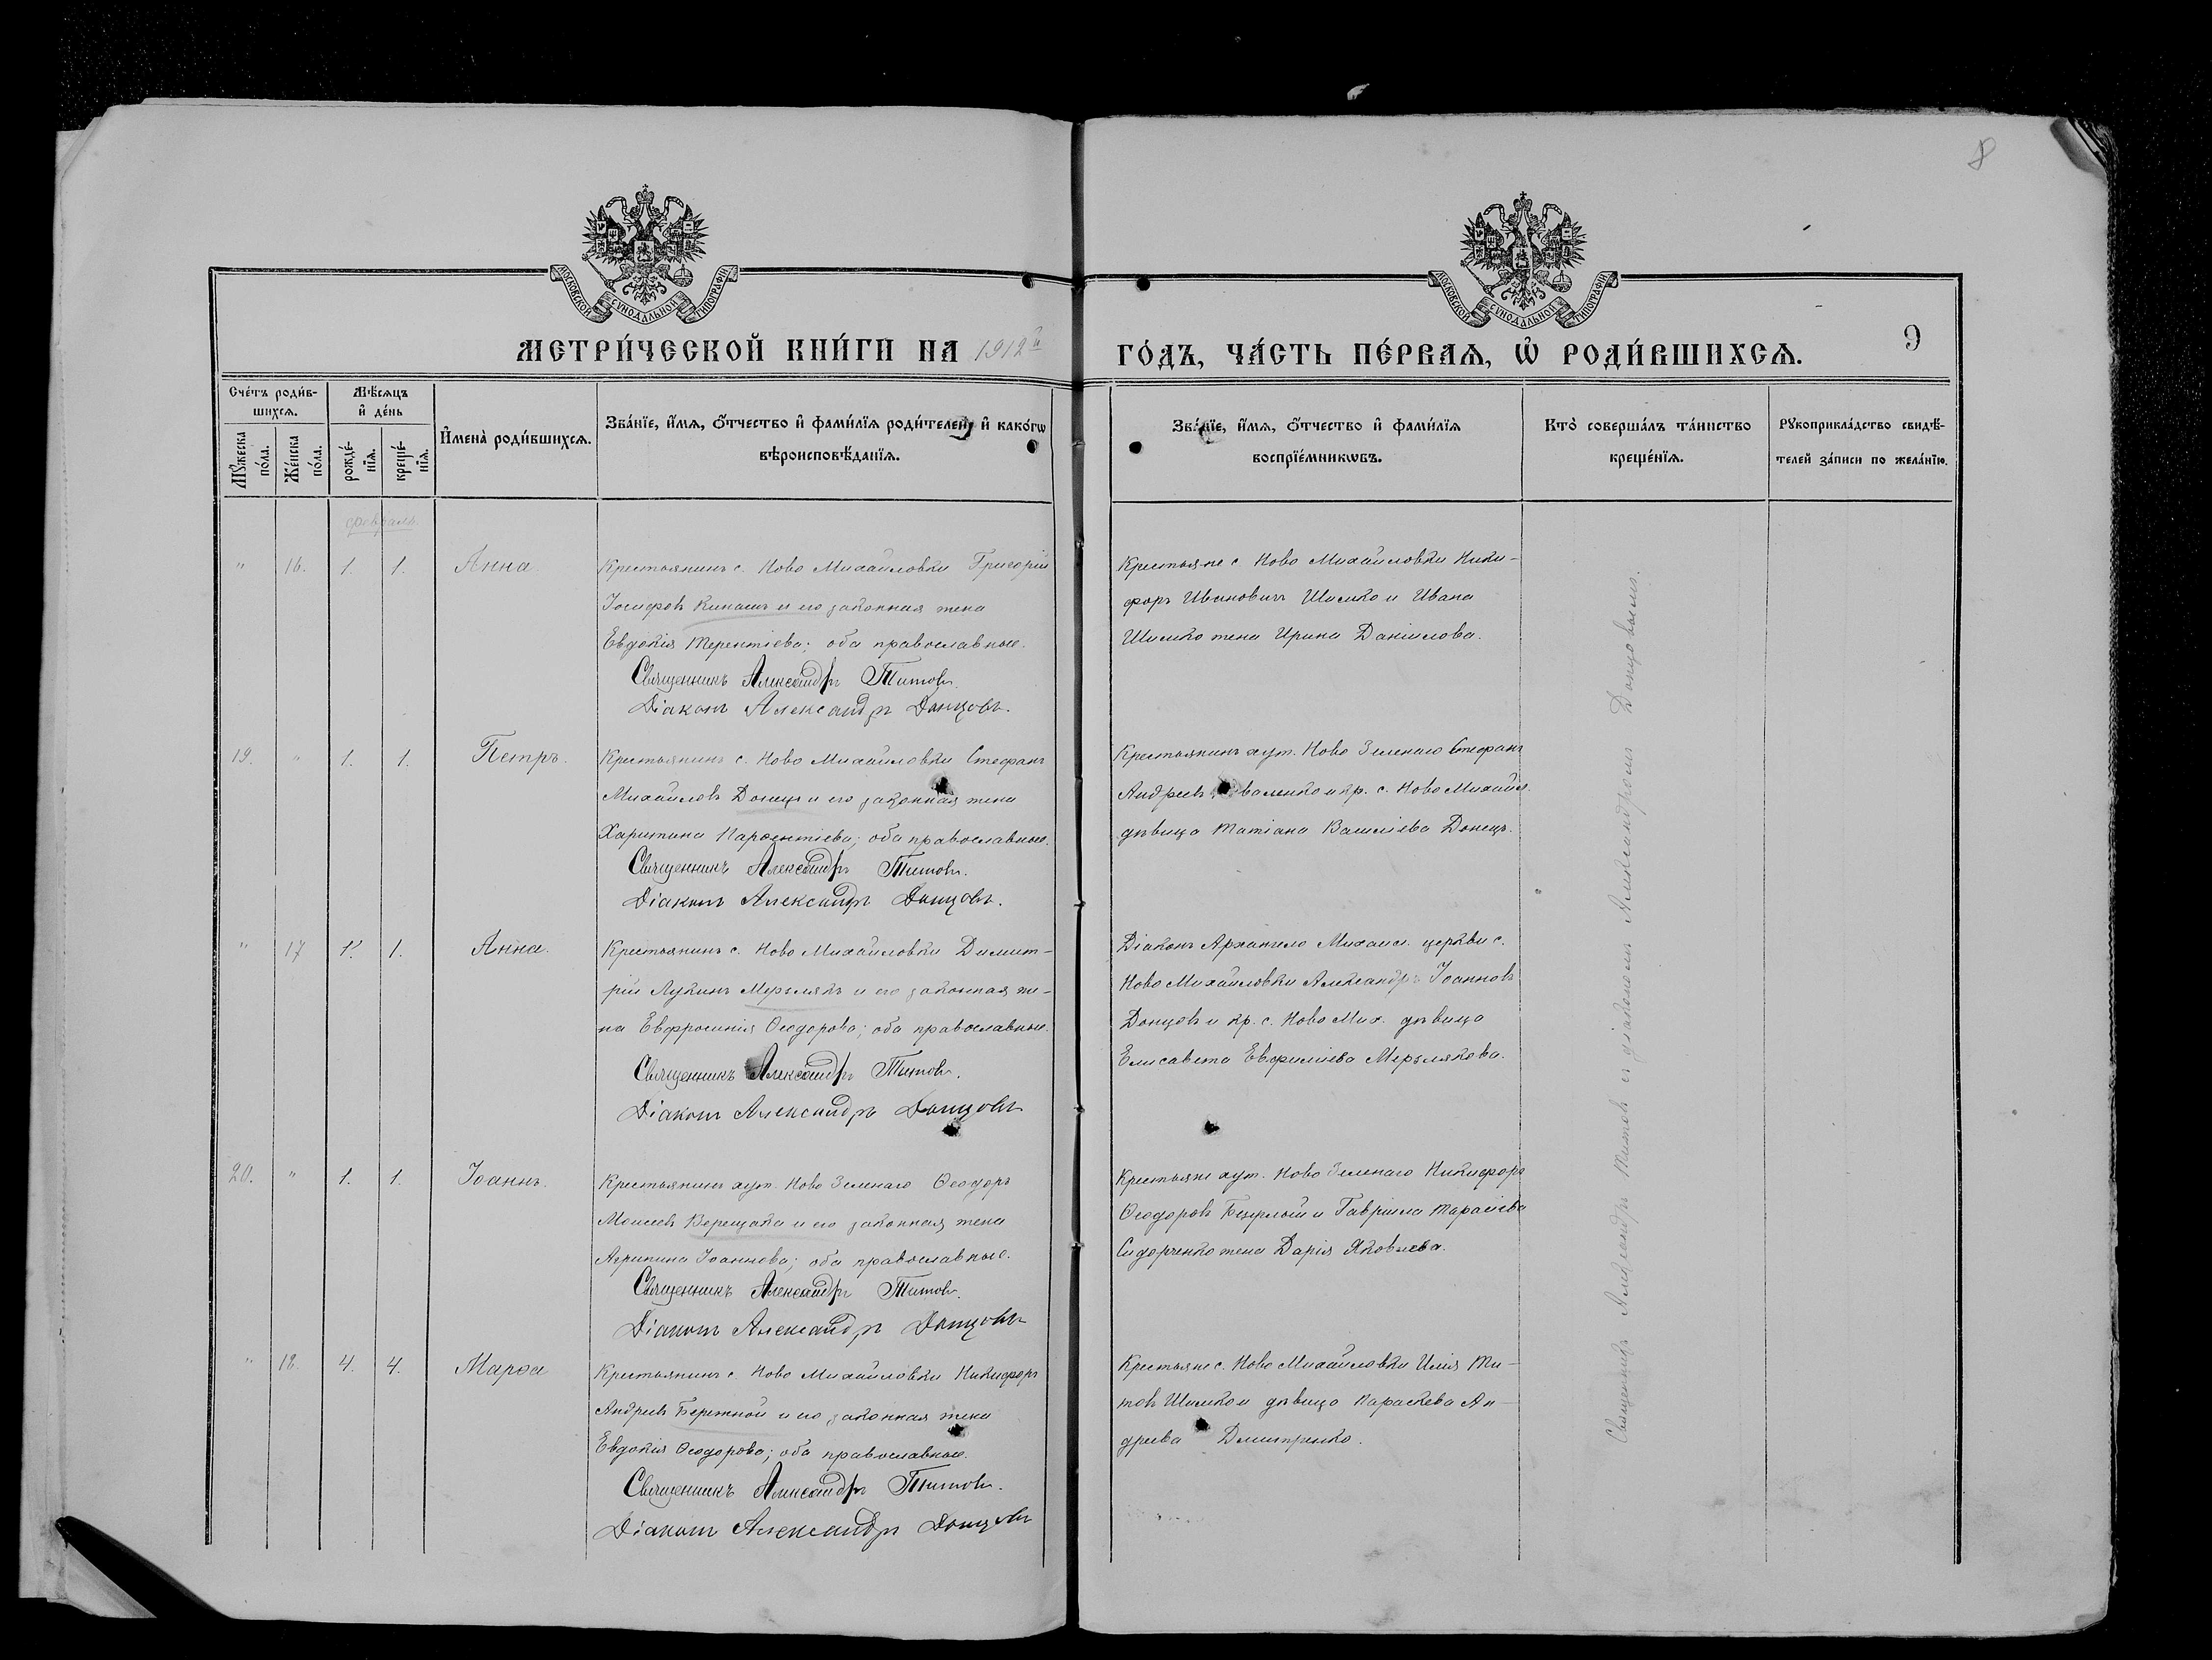 8
МОСКОВСКОЙ СѴНОДАЛЬНОЙ ТИПОГРАФІИ
МОСКОВСКОЙ СѴНОДАЛЬНОЙ ТИПОГРАФІИ
МЕТРИ́ЧЕСКОЙ КНИ́ГИ НА 1912й
ГО́ДЪ, ЧА́СТЬ ПЕ́РВАЯ, Ѡ҆ РОДИ́ВШИХСЯ.
9
Сче́тъ роди́в-
шихся.
Мѣ́сяцъ
и҆ де́нь
Мꙋ́жеска
по́ла.
Же́нска
по́ла.
рожде́-
нїя.
креще́-
нїя.
И҆мена̀ роди́вшихся.
Зва́нїе, и҆́мя, ѻ҆́тчество и҆ фами́лїя роди́телей, и҆ како́гѡ
вѣроисповѣ́данїя.
Зва́нїе, и҆́мя, ѻ҆́тчество и҆ фами́лїя
воспрїе́мникѡвъ.
Кто̀ соверша́лъ та́инство
креще́нїя.
Рꙋкоприкла́дство свидѣ́-
телей за́писи по жела́нїю.
февраль.
" 16. 1. 1. Анна
Крестьянинъ с. Ново Михайловки Григорій
Іосифовъ Кинашъ и его законная жена
Евдокія Терентіева; оба православные.
Священникъ Александръ Титовъ.
Діаконъ Александръ Донцовъ.
Крестьяне с. Ново Михайловки Ники-
форъ Ивановичъ Шимко и Ивана
Шимко жена Ирина Даніилова.
19. " 1. 1. Петръ.
Крестьянинъ с. Ново Михайловки Стефанъ
Михайловъ Донецъ и его законная жена
Харитина Парѳентіева; оба православные.
Священникъ Александръ Титовъ.
Діаконъ Александръ Донцовъ.
Крестьянинъ хут. Ново Зеленаго Стефанъ
Андреевъ и кр. с. Ново Михайл.
дѣвица Татіана Василіева Донецъ.
" 17 1. 1. Анна.
Крестьянинъ с. Ново Михайловки Димит-
рій Лукинъ Мерзлякъ и его законная же-
на Евфросинія Ѳеодорова; оба православные.
Священникъ Александръ Титовъ.
Діаконъ Александръ Донцовъ
Діаконъ Архангело Михаил. церкви с.
Ново Михайловки Александръ Іоанновъ
Донцовъ и кр. с. Ново Мих. дѣвица
Елисавета Евфиміева Мерзлякова.
20. " 1. 1. Іоаннъ.
Крестьянинъ хут. Ново Зеленаго Ѳеодоръ
Моисеевъ Верещака и его законная жена
Агрипина Іоаннова; оба православные.
Священникъ Александръ Титовъ.
Діаконъ Александръ Донцовъ
Крестьяне хут. Ново Зеленаго Никифоръ
Ѳеодоровъ и Гавріила Тарасіева
Сидорченко жена Дарія Яковлева.
" 18. 4. 4. Марѳа
Крестьянинъ с. Ново Михайловки Никифоръ
Андреевъ Бережной и его законная жена
Евдокія Ѳеодорова; оба православные.
Священникъ Александръ Титовъ.
Діаконъ Александръ Донцовъ
Крестьяне с. Ново Михайловки Илія Ти-
товъ Шимко и дѣвица Параскева Ан-
дреева Дмитренко.
Священникъ Александръ Титовъ съ діакономъ Александромъ Донцовымъ.